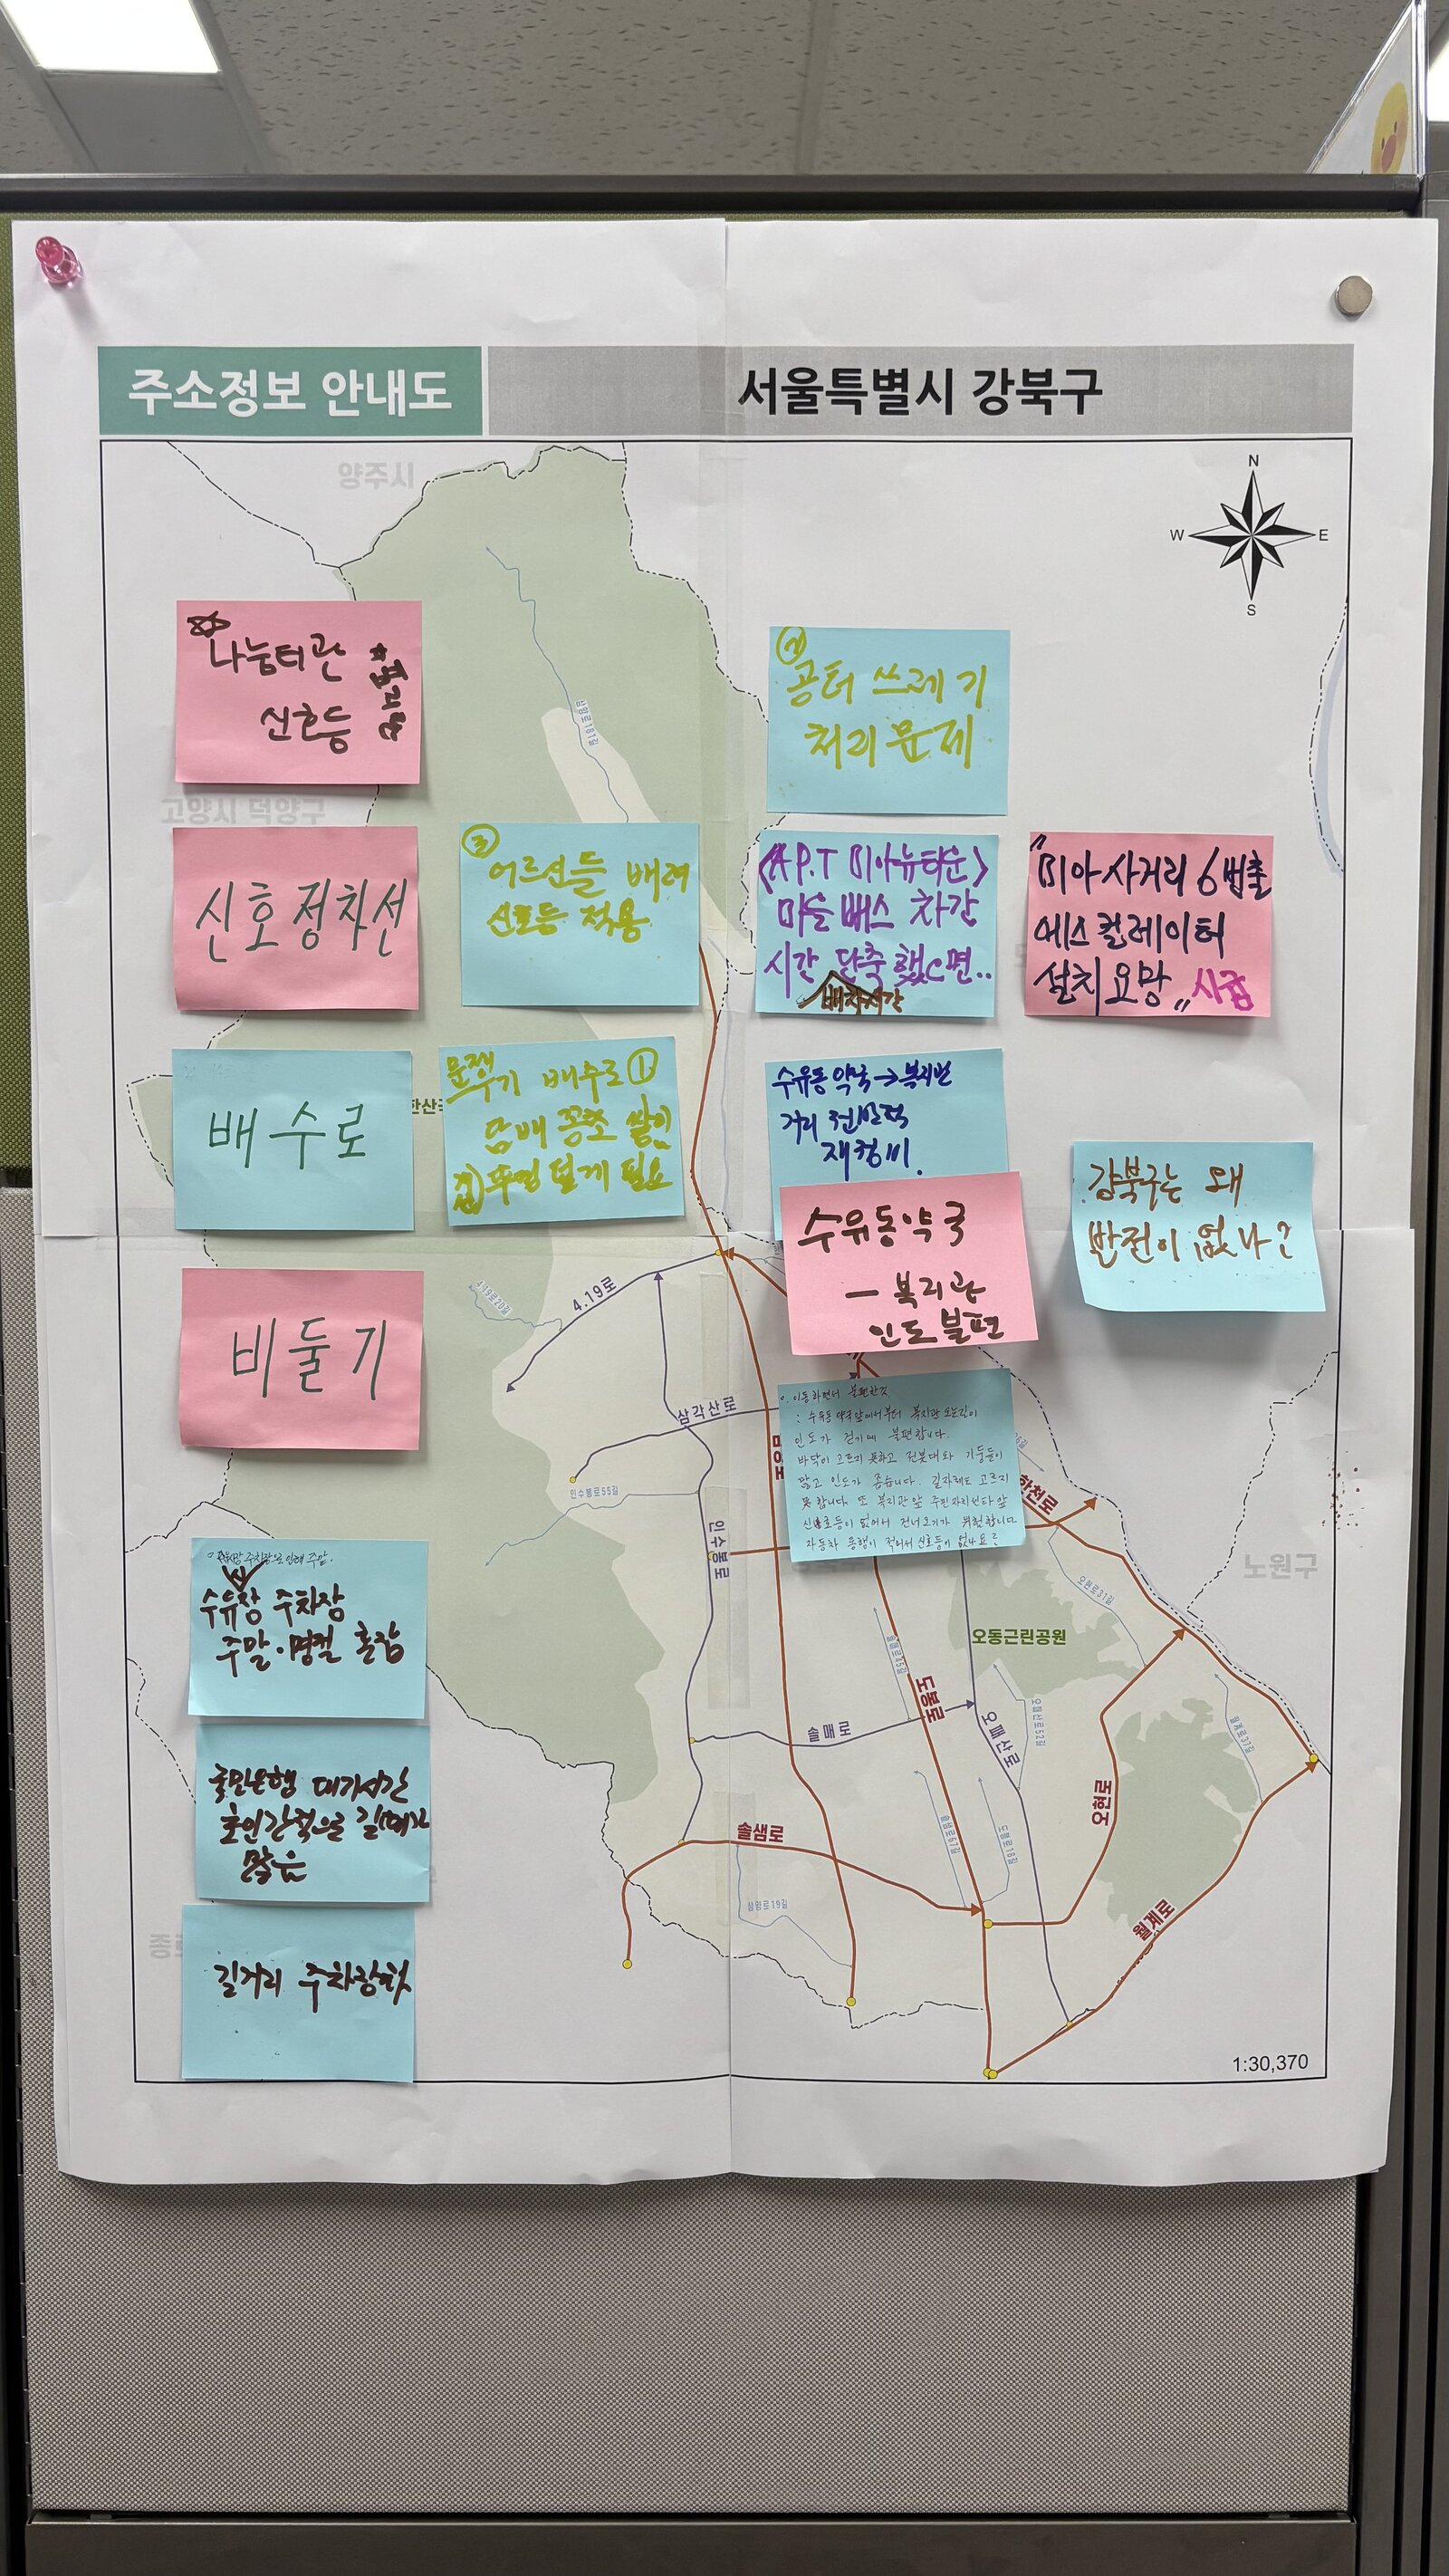 주소정보 안내도
서울특별시 강북구
양주시
N
W
E
S
나눔터관
신호등
고양시 덕양구
삼양로181길
②
공터 쓰레기
처리 문제
신호정차선
③
어르신들 배려
신호등 적용
<A.P.T 미아뉴타운>
마을 배스 차간
시간 단축 했으면..
배차시간
"미아사거리 6번출
에스컬레이터
설치요망"
배수로
문제
배수로 ①
담배 꽁초 쌓임
뚜껑 덮게 필요
수유동 약국→복지관
거리 전반적
재정비.
수유동약국
- 복지관
인도 불편
강북구는 왜
발전이 없나?
비둘기
4.19로20길
4.19로
삼각산로
인수봉로55길
인수봉로
o. 이동하면서 불편한것.
: 수유동 약국앞에서부터 복지관 오는길이
인도가 걷기에 불편합니다.
바닥이 고르지 못하고 전봇대와 기둥들이
많고 인도가 좁습니다. 길자체도 고르지
못합니다. 또 복지관 앞 주민자치센타 앞
신호등이 없어서 건너오기가 위험합니다
자동차 통행이 적어서 신호등이 없나요?
한천로
노원구
수유장 주차장
주말·명절 혼잡
국민은행 대기시간
길때가
많음
길거리 주차
오동근린공원
오현로31길
솔매로
도봉로
오패산로
오패산로52길
월계로37길
오현로
솔샘로
솔샘로67길
도봉로18길
삼양로19길
월계로
1:30,370